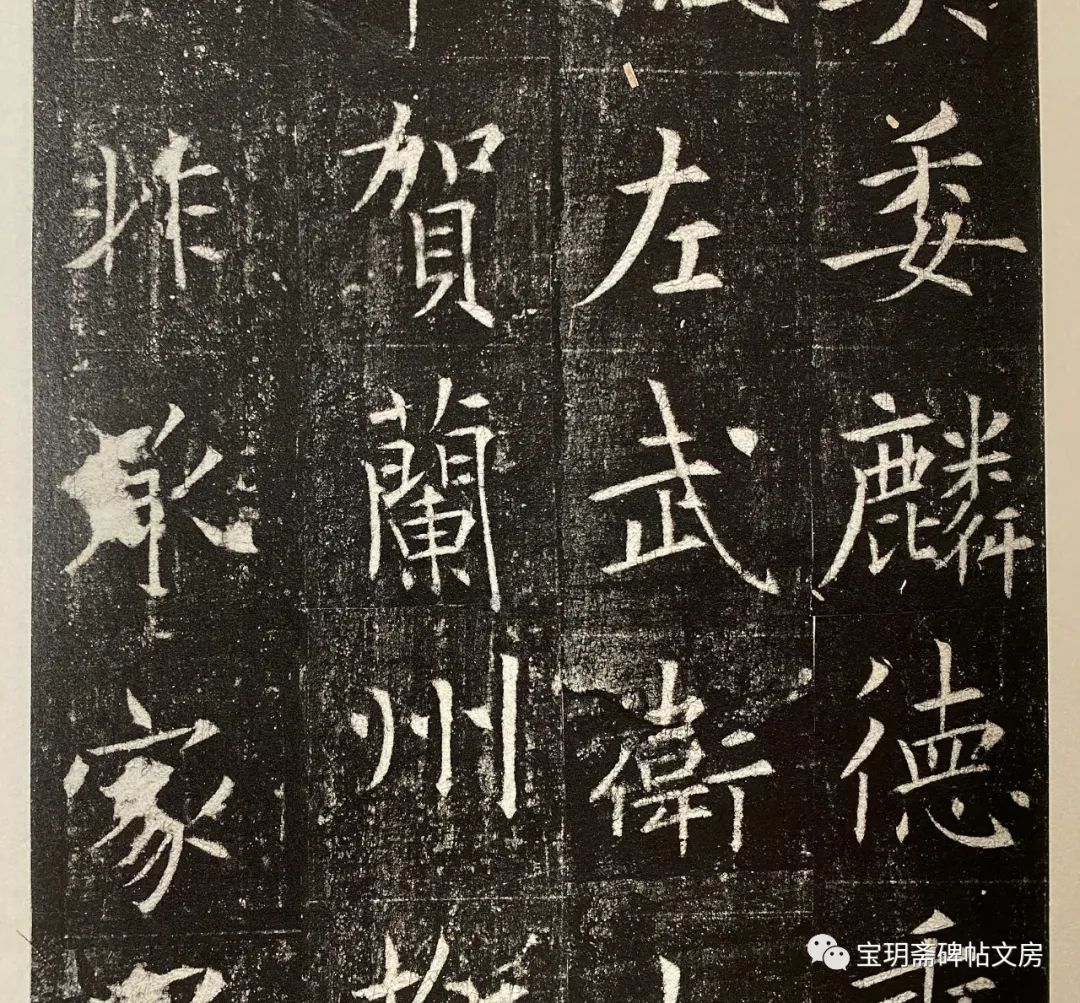 委麟德
左武衛
賀蘭州
非承家
宝玥斋碑帖文房